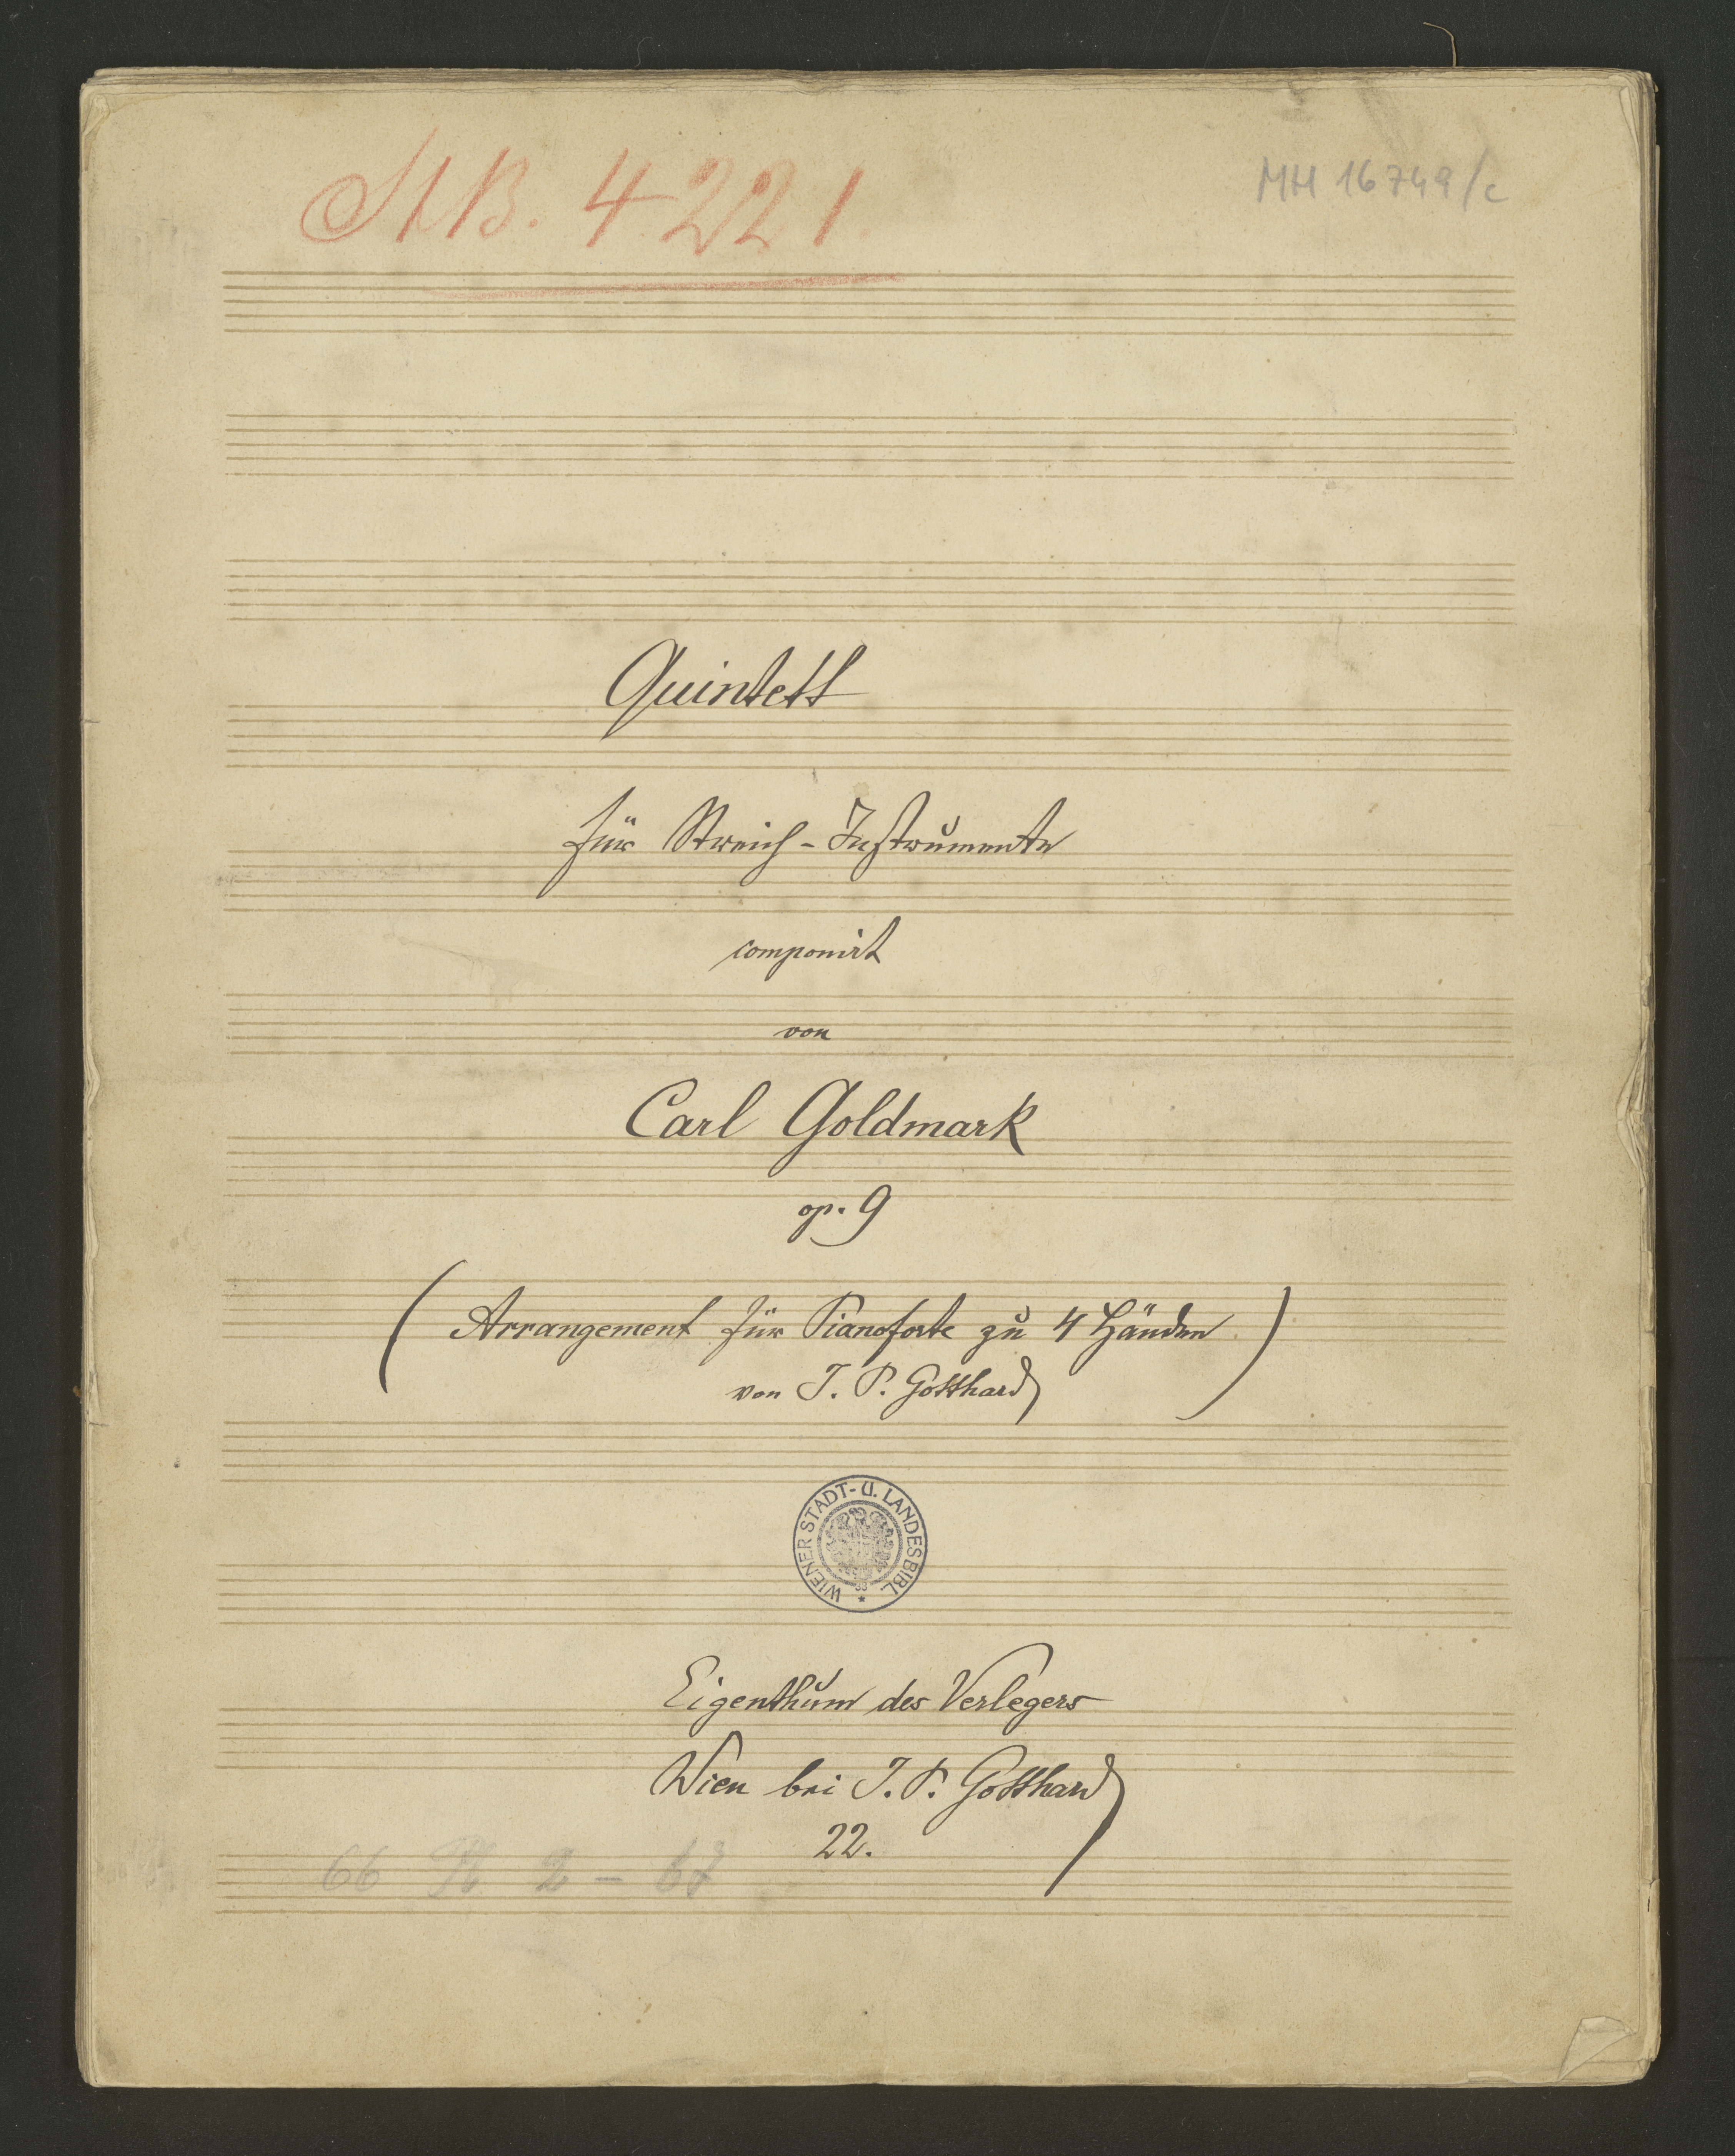 AB. 4221.
MH 16749/c
Quintett
für Streich-Instrumente
componirt
von
Carl Goldmark
op. 9
(Arrangement für Pianoforte zu 4 Händen
von J. P. Gotthard)
WIENER STADT- U. LANDESBIBL.
Eigenthum des Verlegers
Wien bei J. P. Gotthard
22.
66 2 - 67